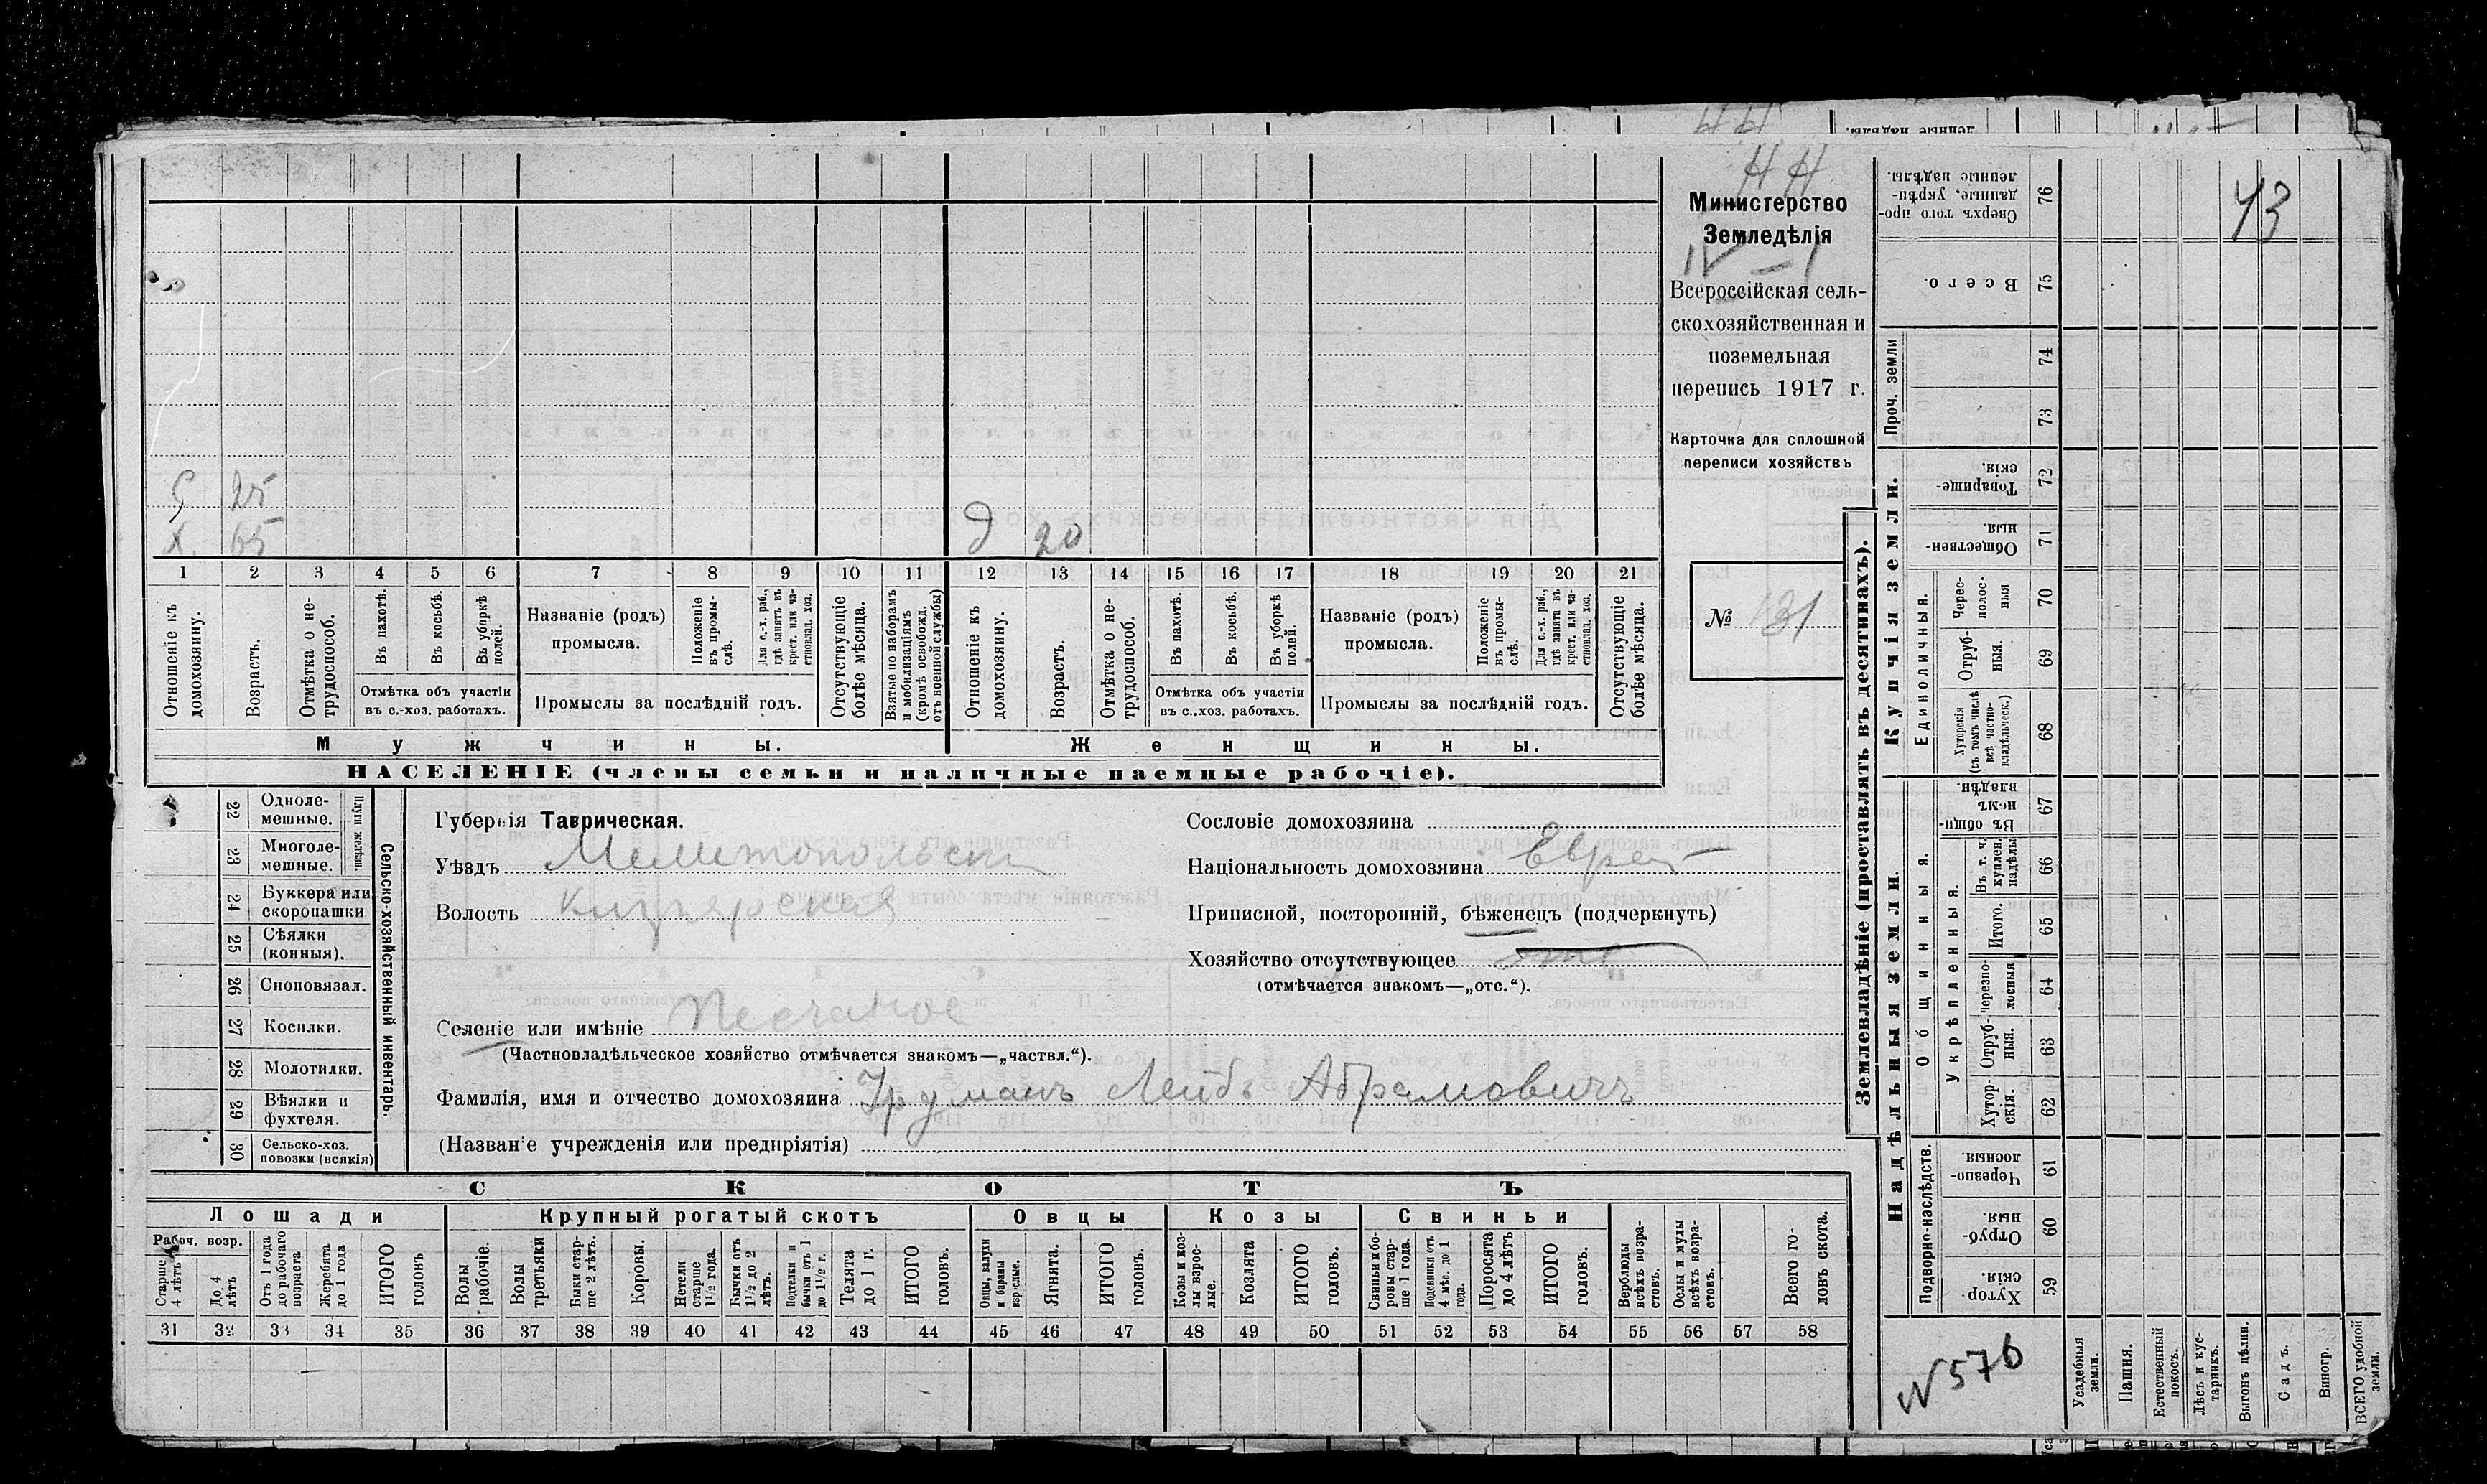 НН
Министерство
Земледѣлія
IV – I
Всероссійская сель-
скохозяйственная и
поземельная
перепись 1917 г.
Карточка для сплошной
переписи хозяйствъ
№ 131
25
х. 65
д 20
1 2 3 4 5 6 7 8 9 10 11 12 13 14 15 16 17 18 19 20 21
Отношеніе къ домохозяину.
Возрастъ.
Отмѣтка о не-трудоспособ.
Въ пахотѣ.
Въ косьбѣ.
Въ уборкѣ полей.
Отмѣтка объ участіи
въ с.-хоз. работахъ.
Названіе (родъ)
промысла.
Положеніе въ промы-слѣ.
Для с.-х. раб., гдѣ занятъ въ крест. или ча-стновлад. хоз.
Промыслы за послѣдній годъ.
Отсутствующіе болѣе мѣсяца.
Взятые по наборамъ и мобилизаціямъ (кромѣ освобожд. отъ военной службы)
Отношеніе къ домохозяину.
Возрастъ.
Отмѣтка о не-трудоспособ.
Въ пахотѣ.
Въ косьбѣ.
Въ уборкѣ полей.
Отмѣтка объ участіи
въ с.-хоз. работахъ.
Названіе (родъ)
промысла.
Положеніе въ промы-слѣ.
Для с.-х. раб., гдѣ занята въ крест. или ча-стновлад. хоз.
Промыслы за послѣдній годъ.
Отсутствующіе болѣе мѣсяца.
Мужчины.
Женщины.
НАСЕЛЕНІЕ (члены семьи и наличные наемные рабочіе).
22 Одноле-мешные.
23 Многоле-мешные.
Плуги желѣзн.
24 Буккера или скоропашки
25 Сѣялки (конныя).
26 Сноповязал.
27 Косилки.
28 Молотилки.
29 Вѣялки и фухтеля.
30 Сельско-хоз. повозки (всякія)
Сельско-хозяйственный инвентарь.
Губернія Таврическая.
Уѣздъ Мелитопольскій
Волость
Селеніе или имѣніе Песчаное
(Частновладѣльческое хозяйство отмѣчается знакомъ—„частвл.“).
Фамилія, имя и отчество домохозяина Труманъ Лейбъ Абрамовичъ
(Названіе учрежденія или предпріятія)
Сословіе домохозяина
Національность домохозяина Еврей
Приписной, посторонній, бѣженецъ (подчеркнуть)
Хозяйство отсутствующее отс
(отмѣчается знакомъ—„отс.“).
СКОТЪ
Лошади
Крупный рогатый скотъ
Овцы
Козы
Свиньи
Рабоч. возр.
Старше 4 лѣтъ
До 4 лѣтъ
Отъ 1 года до рабочаго возраста
Жеребята до 1 года
ИТОГО головъ
Волы рабочіе.
Волы третьяки
Быки стар-ше 2 лѣтъ.
Коровы.
Нетели старше 1½ года.
Бычки отъ 1½ до 2 лѣтъ.
Подтелки и бычки отъ 1 до 1½ г.
Телята до 1 г.
ИТОГО головъ.
Овцы, валухи и бараны взрослые.
Ягнята.
ИТОГО головъ.
Козы и коз-лы взрос-лые.
Козлята
ИТОГО головъ.
Свиньи и бо-ровы стар-ше 1 года.
Подсвинки отъ 4 мѣс. до 1 года.
Поросята до 4 лѣтъ
ИТОГО головъ.
Верблюды всѣхъ возра-стовъ.
Ослы и мулы всѣхъ возра-стовъ.
Всего го-ловъ скота.
31 32 33 34 35 36 37 38 39 40 41 42 43 44 45 46 47 48 49 50 51 52 53 54 55 56 57 58
Землевладѣніе (проставлять въ десятинахъ).
Купчія земли.
Надѣльныя земли.
Сверхъ того про-данные, укрѣп-ленные надѣлы. 76
Всего. 75
Проч. земли
74
73
Товарище-скія. 72
Обществен-ныя. 71
Единоличныя.
Черес-полос-ныя 70
Отруб-ныя. 69
Хуторскія (въ томъ числѣ всѣ частно-владѣльческ.) 68
Общинныя.
Въ общи-номъ владѣн. 67
Укрѣпленныя.
Въ т. ч. куплен. надѣлы 66
Итого. 65
Черезпо-лосныя 64
Отруб-ныя. 63
Хутор-скія. 62
Подворно-наслѣдств.
Черезпо-лосныя. 61
Отруб-ныя. 60
Хутор-скія. 59
43
N 576
Усадебныя земли.
Пашня.
Естественный покосъ.
Лѣсъ и кус-тарникъ.
Выгонъ цѣлин.
Садъ.
Виногр.
ВСЕГО удобной земли.